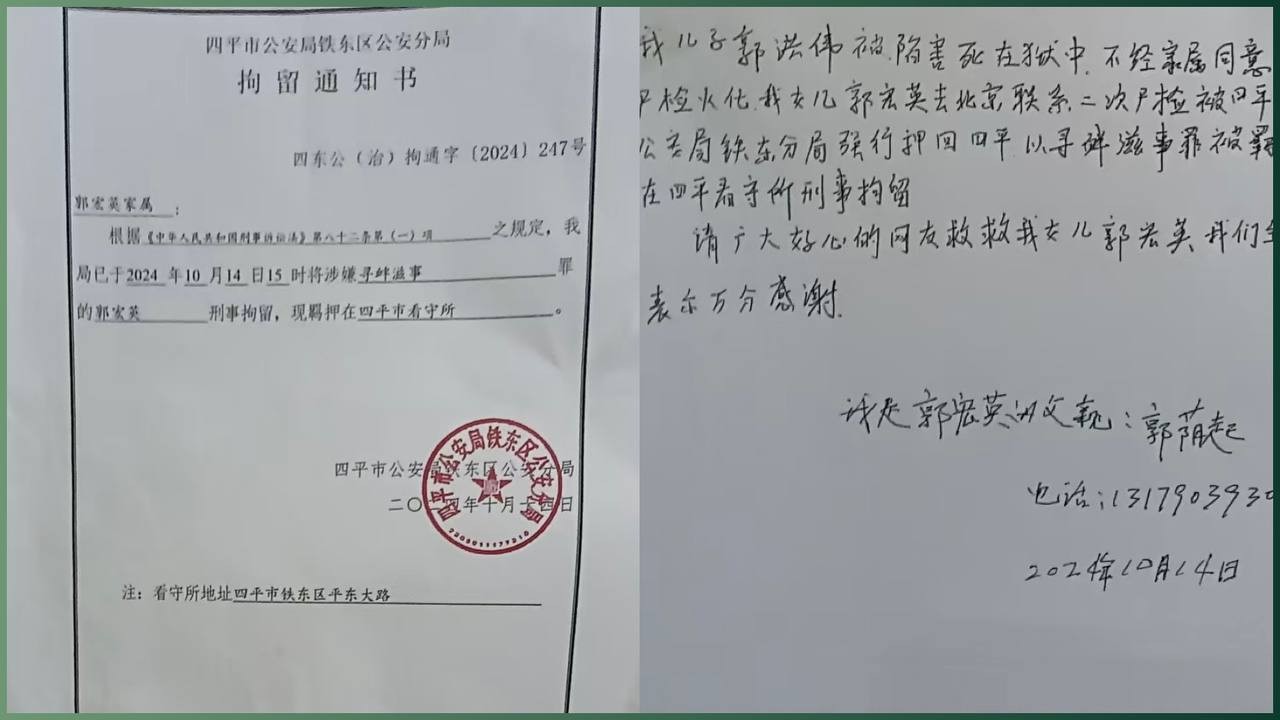 四平市公安局铁东区公安分局
拘留通知书
四东公（治）拘通字〔2024〕247号
郭宏英家属：
根据《中华人民共和国刑事诉讼法》第八十二条第（一）项之规定，我
局已于2024年10月14日15时将涉嫌寻衅滋事罪
的郭宏英刑事拘留，现羁押在四平市看守所。
四平市公安局铁东区公安分局
二〇二四年十月十四日
四平市公安局铁东区公安分局
注：看守所地址四平市铁东区平东大路
我儿子郭洪伟被陷害死在狱中，不经家属同意
尸检火化，我女儿郭宏英去北京联系二次尸检被四平
公安局铁东分局强行押回四平以寻衅滋事罪被羁
在四平看守所刑事拘留
请广大好心的网友救救我女儿郭宏英，我们全
表示万分感谢.
我是郭宏英的父亲：郭荫起
电话：1317903930
2024年10月14日